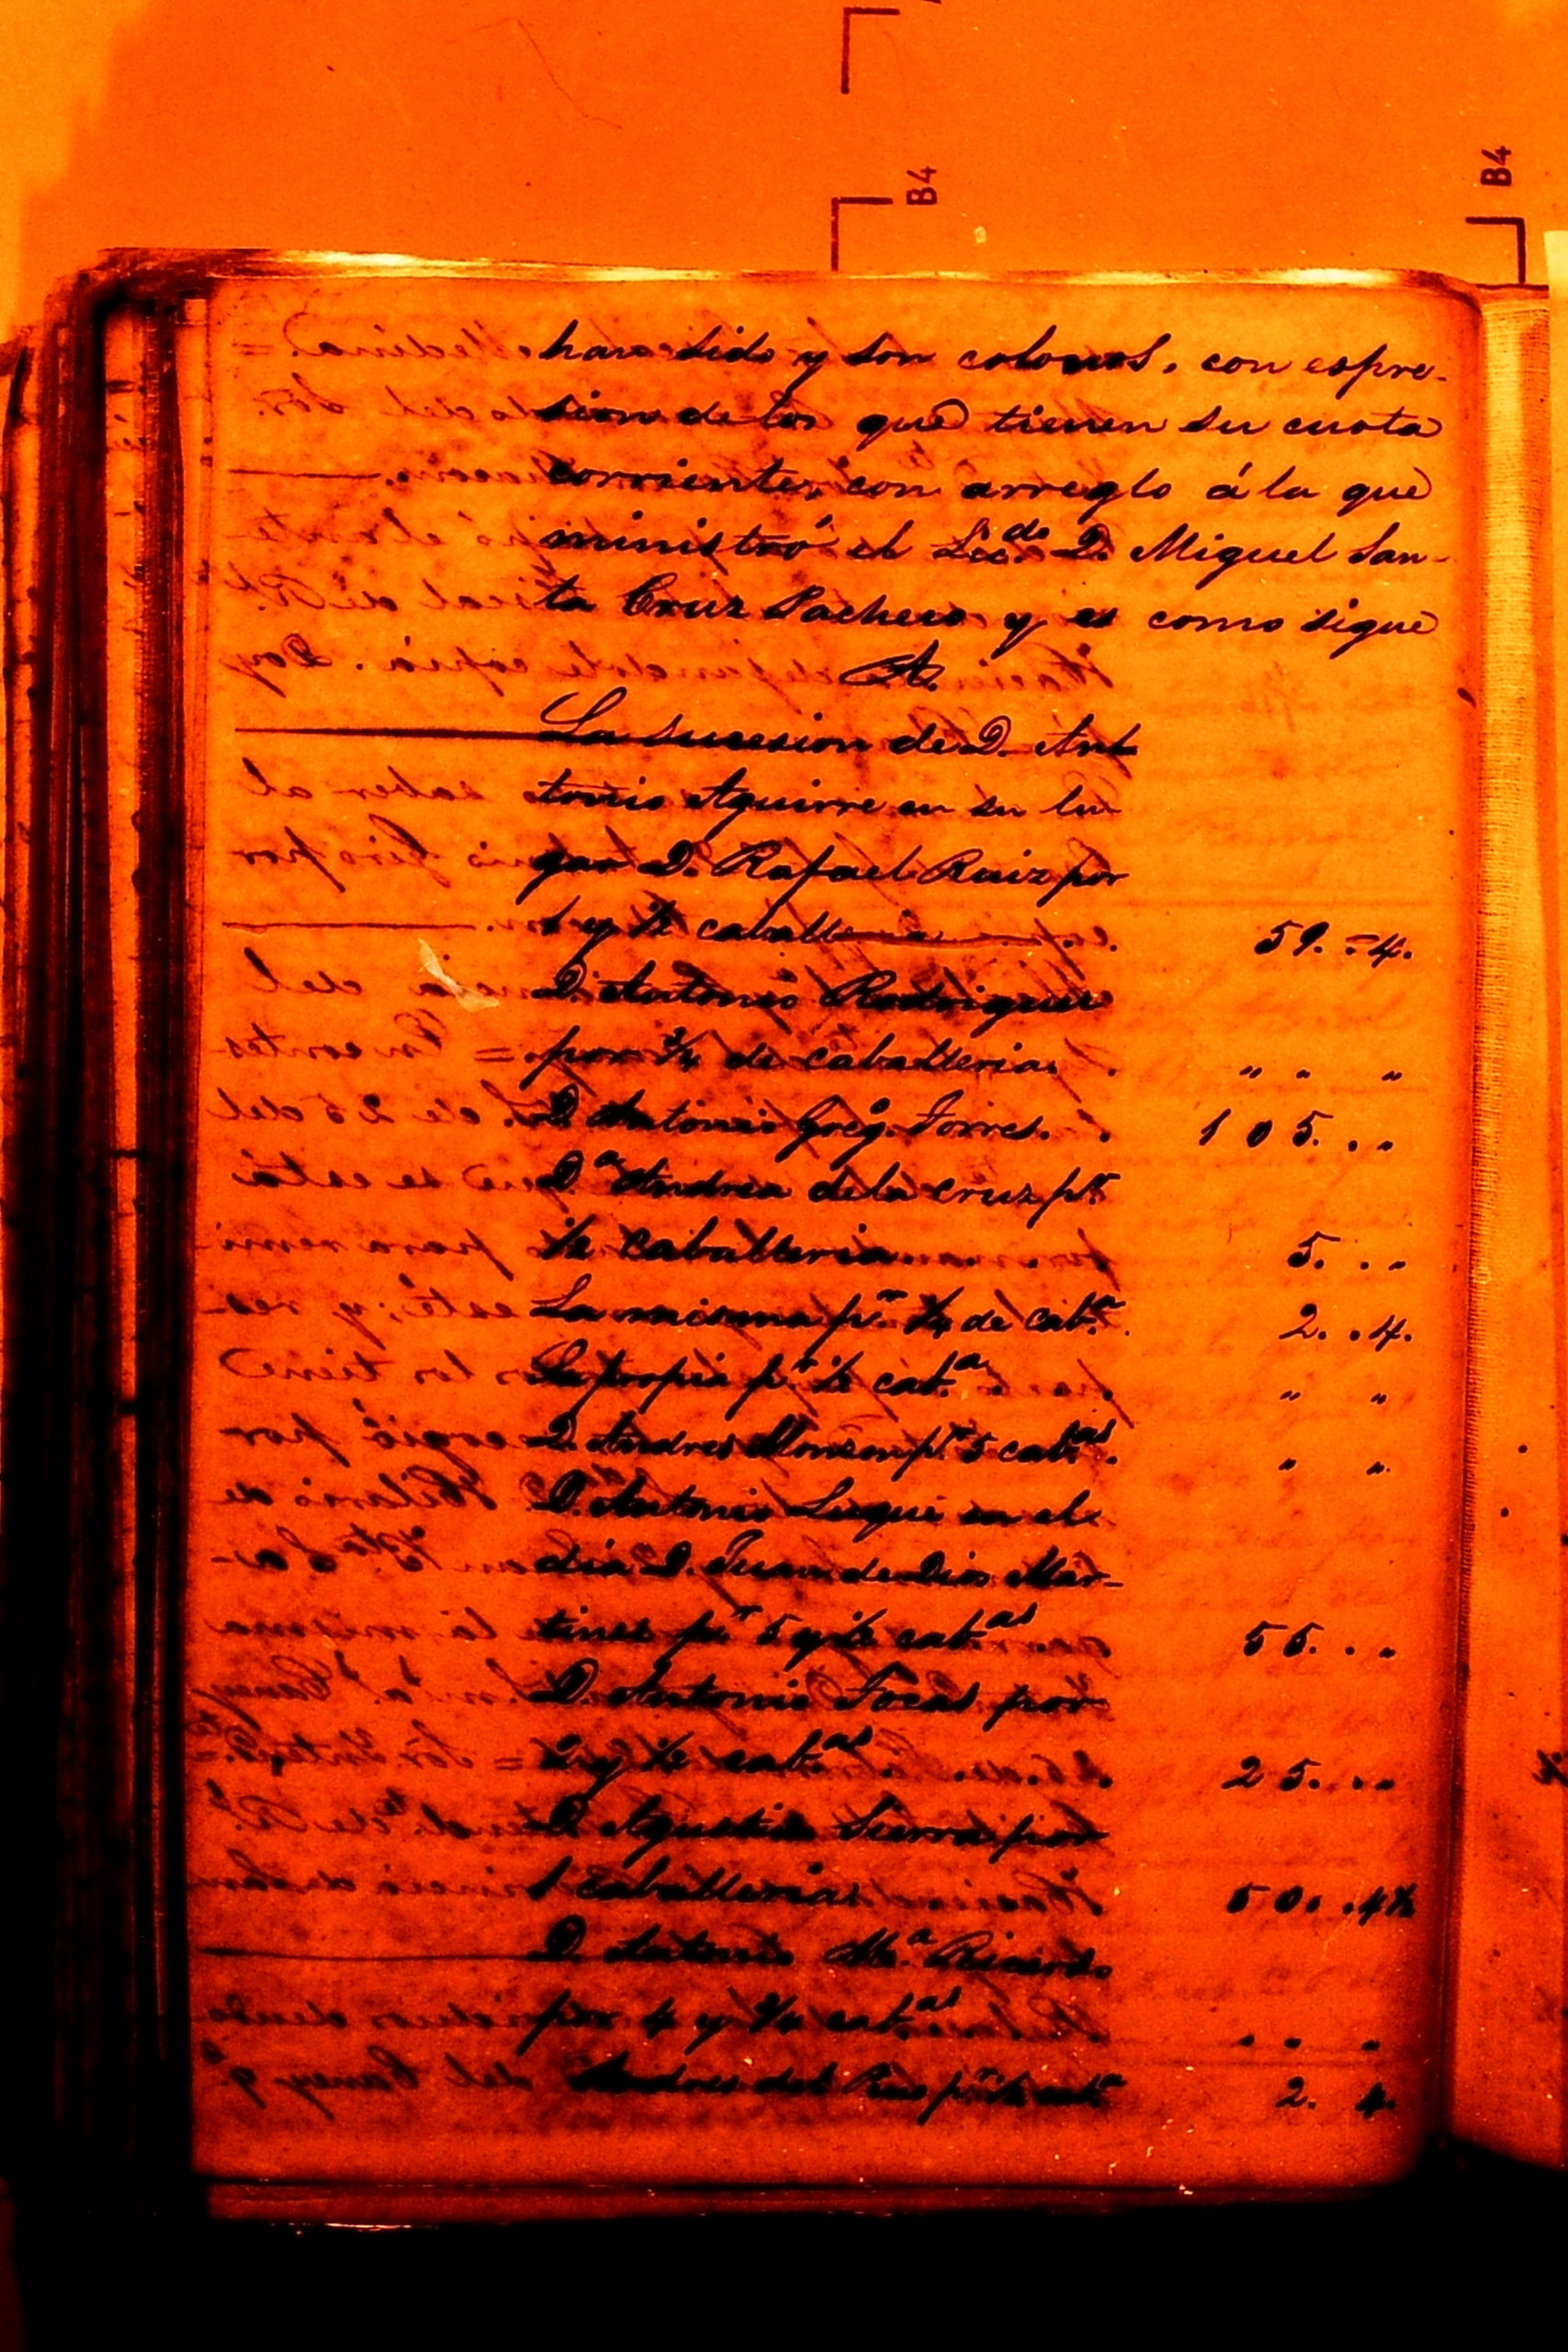 B4
B4
han sido y son colonos, con espre-
sion de los que tienen su cuota
corriente, con arreglo á la que
ministró el Lic.do D. Miguel San-
ta Cruz Pacheco y es como sigue
A.
La sucesion de D. An
tonio Aguirre en su lu
gar D. Rafael Ruiz por
1 y ½ caballeria . 59. = 4.
D. Antonio Rodriguez
por ¾ de caballeria . " " "
D. Antonio Greg.o Torres. . 105. . "
D.a Andrea de la Cruz p.r
½ caballeria 5. . "
La misma p.r ¼ de cab.a . 2. . 4.
La propia p.r ½ cab.a " "
D. Andres Monzon p.r 5 cab.as . " "
D. Antonio Luque en el
dia D. Juan de Dios Mar-
tines p.r 5 y ½ cab.as 55. . "
D. Antonio por
2 y ½ cab.as . 25. . "
D. Agustin Sierra por
1 caballeria 50. . 4½
D. Antonio M.a Ricardo
por 4 y ¾ cab.as " " "
Andres del p.r ¼ cab.a 2. 4.